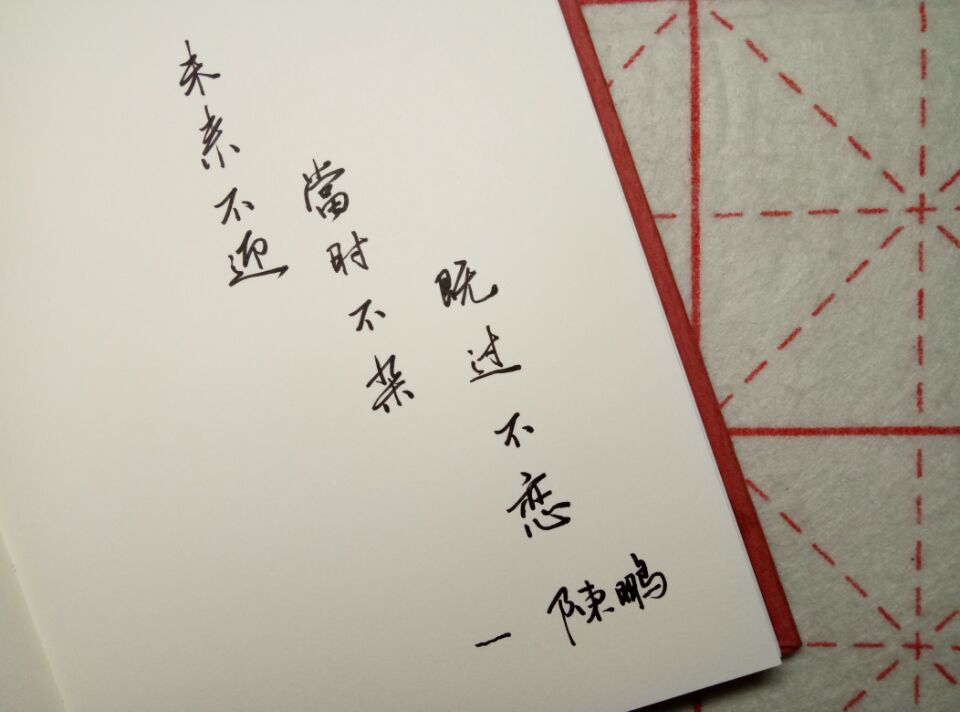 未来不迎
當时不杂
既过不恋
— 陳鹏